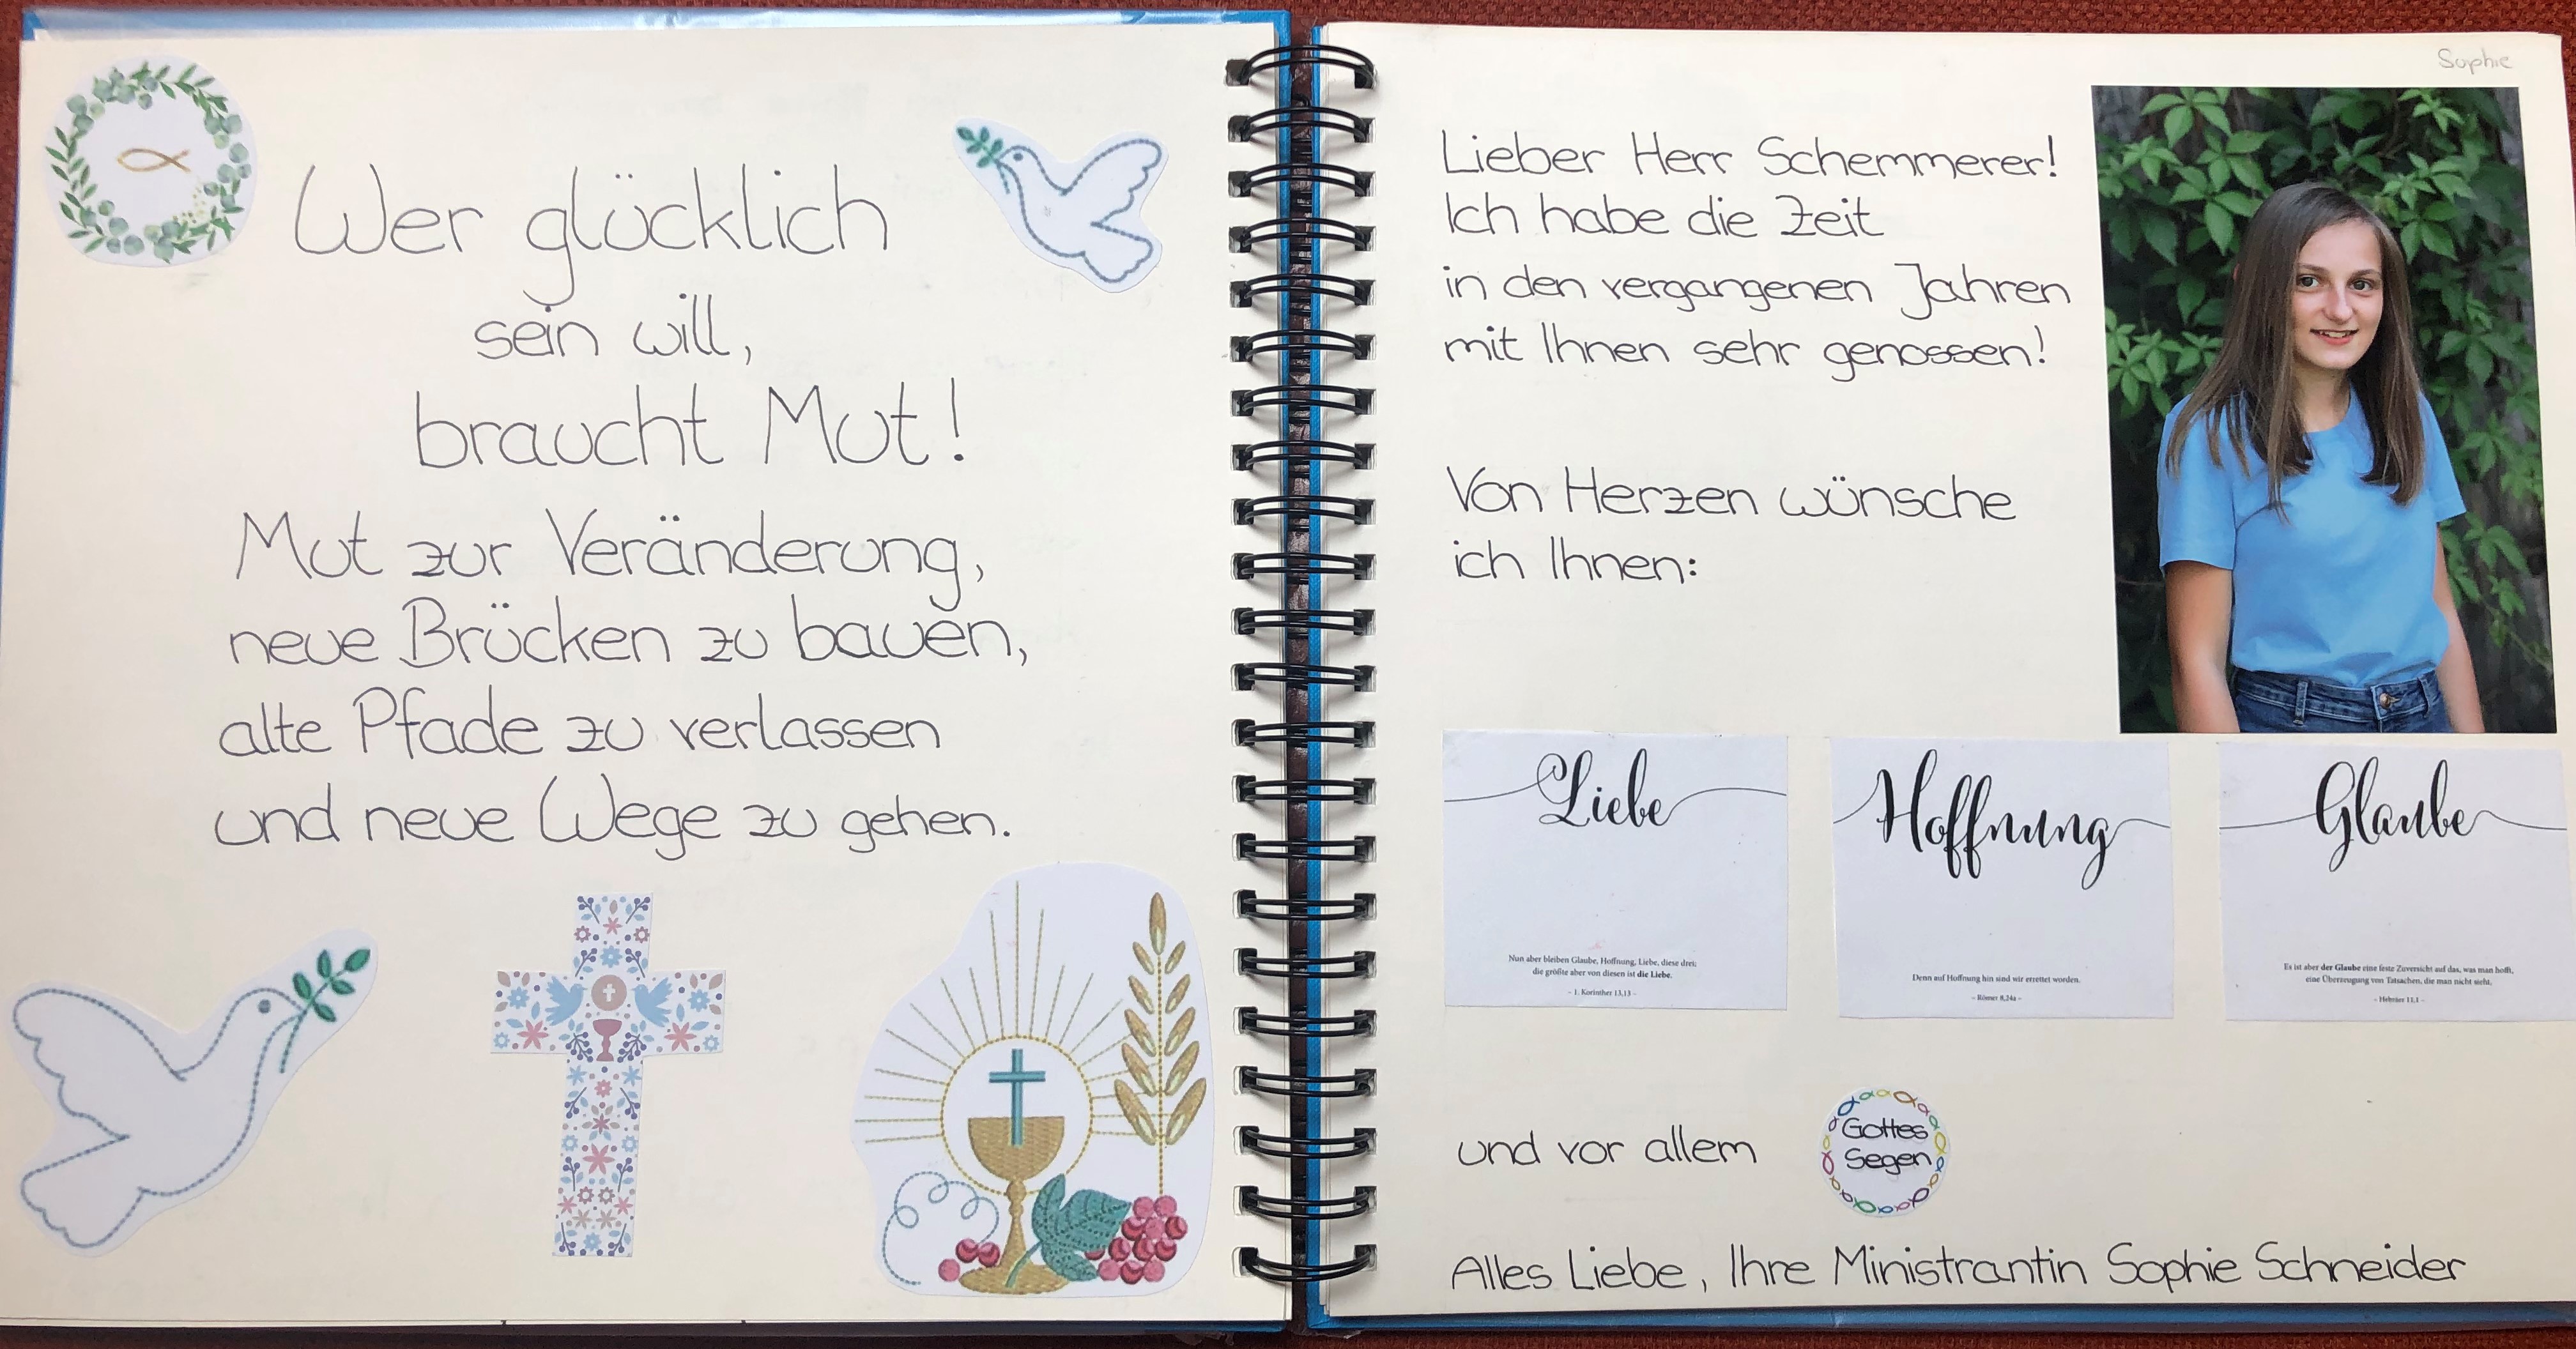 Wer glücklich
sein will,
braucht Mut!
Mut zur Veränderung,
neue Brücken zu bauen,
alte Pfade zu verlassen
und neue Wege zu gehen.
Sophie
Lieber Herr Schemmerer!
Ich habe die Zeit
in den vergangenen Jahren
mit Ihnen sehr genossen!
Von Herzen wünsche
ich Ihnen:
Liebe
Nun aber bleiben Glaube, Hoffnung, Liebe, diese drei;
die größte aber von diesen ist die Liebe.
– 1. Korinther 13,13 –
Hoffnung
Denn auf Hoffnung hin sind wir errettet worden.
– Römer 8,24a –
Glaube
Es ist aber der Glaube eine feste Zuversicht auf das, was man hofft,
eine Überzeugung von Tatsachen, die man nicht sieht.
– Hebräer 11,1 –
und vor allem
Gottes
Segen
Alles Liebe, Ihre Ministrantin Sophie Schneider